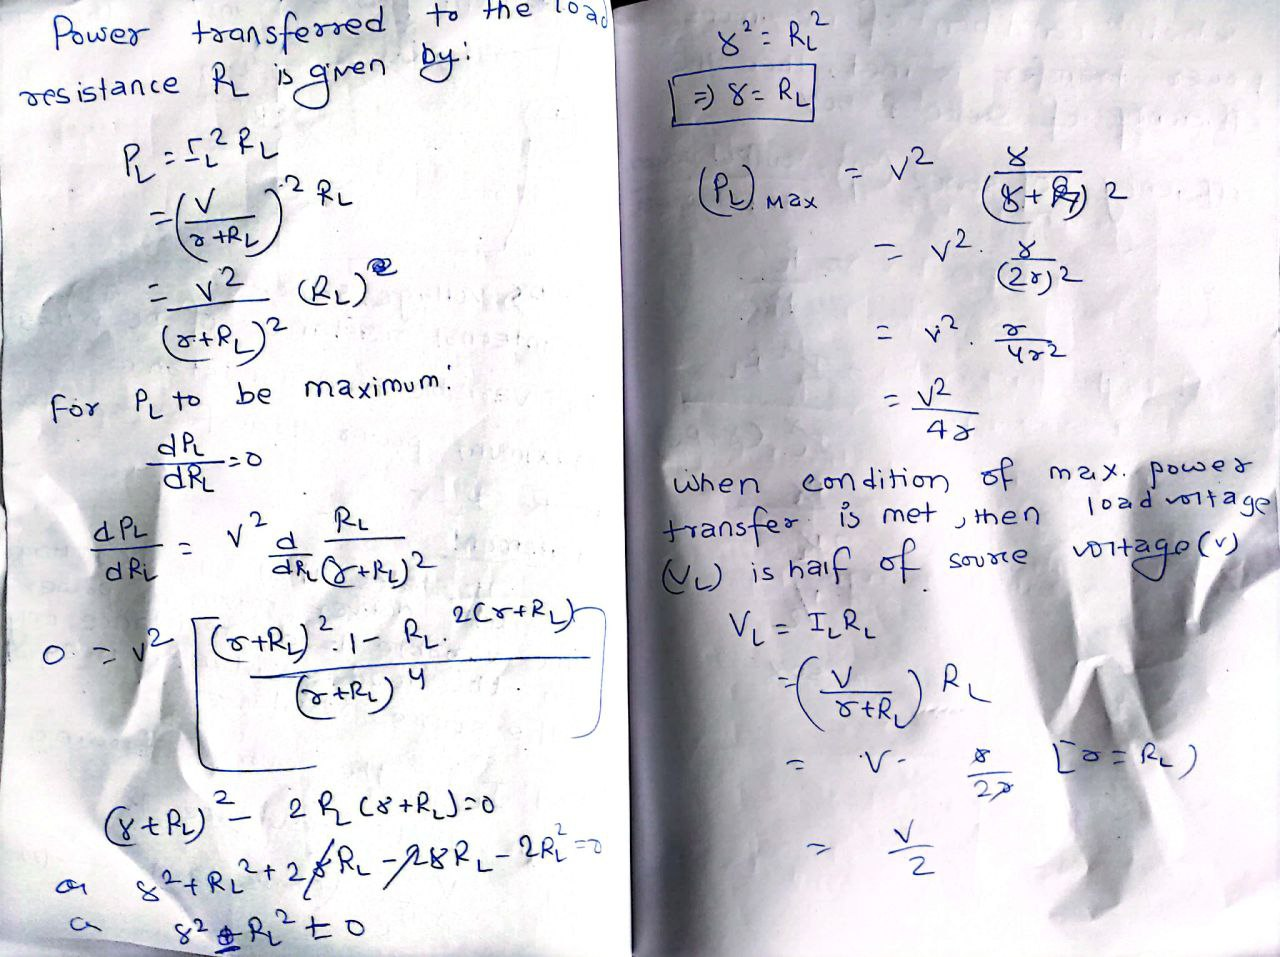 Power transferred to the load
resistance R_L is given by:
P_L = I_L^2 R_L
= (V / (r + R_L))^2 R_L
= V^2 / (r + R_L)^2 (R_L)
For P_L to be maximum:
dP_L / dR_L = 0
dP_L / dR_L = V^2 d/dR_L R_L / (r + R_L)^2
0 = V^2 [ ((r + R_L)^2 . 1 - R_L . 2(r + R_L)) / (r + R_L)^4 ]
(r + R_L)^2 - 2 R_L (r + R_L) = 0
or r^2 + R_L^2 + 2rR_L - 2rR_L - 2R_L^2 = 0
r^2 R_L^2 = 0
r^2 = R_L^2
=> r = R_L
(P_L) Max = V^2 r / (r + r)^2
= V^2 . r / (2r)^2
= V^2 . r / 4r^2
= V^2 / 4r
When condition of max. power
transfer is met, then load voltage
(V_L) is half of source voltage (V)
V_L = I_L R_L
= (V / (r + R_L)) R_L
= V. r / 2r [r = R_L)
= V / 2